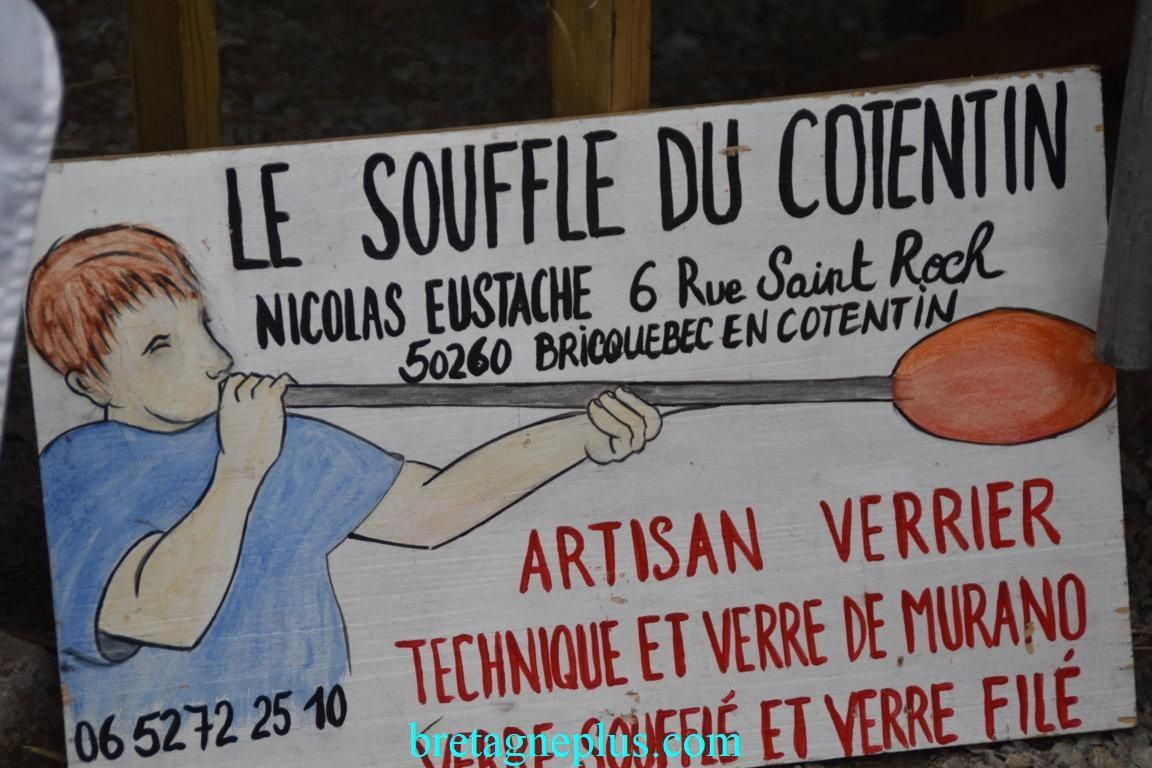 LE SOUFFLE DU COTENTIN
NICOLAS EUSTACHE 6 Rue Saint Roch
50260 BRICQUEBEC EN COTENTIN
ARTISAN VERRIER
TECHNIQUE ET VERRE DE MURANO
VERRE SOUFFLÉ ET VERRE FILÉ
06 52 72 25 10
bretagneplus.com